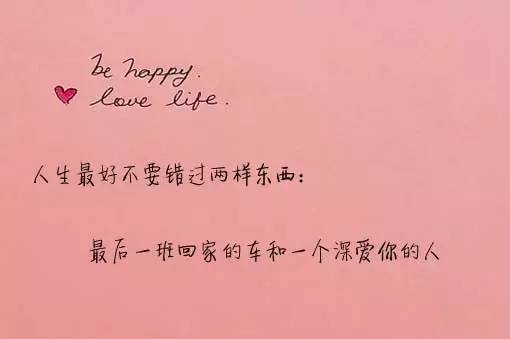 be happy.
love life.
人生最好不要错过两样东西：
最后一班回家的车和一个深爱你的人